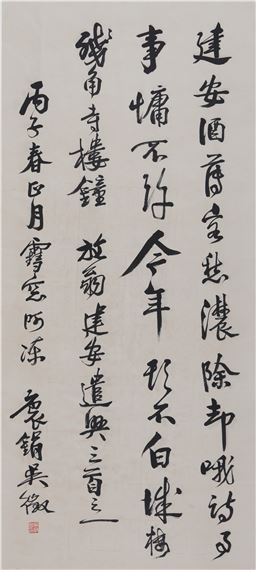 建安酒薄客愁濃除却哦詩事
事慵不許今年頭不白城樓
殘角寺樓鐘 放翁建安遣興三首之一
丙子春正月雪窗呵凍 袌鋗吳徵